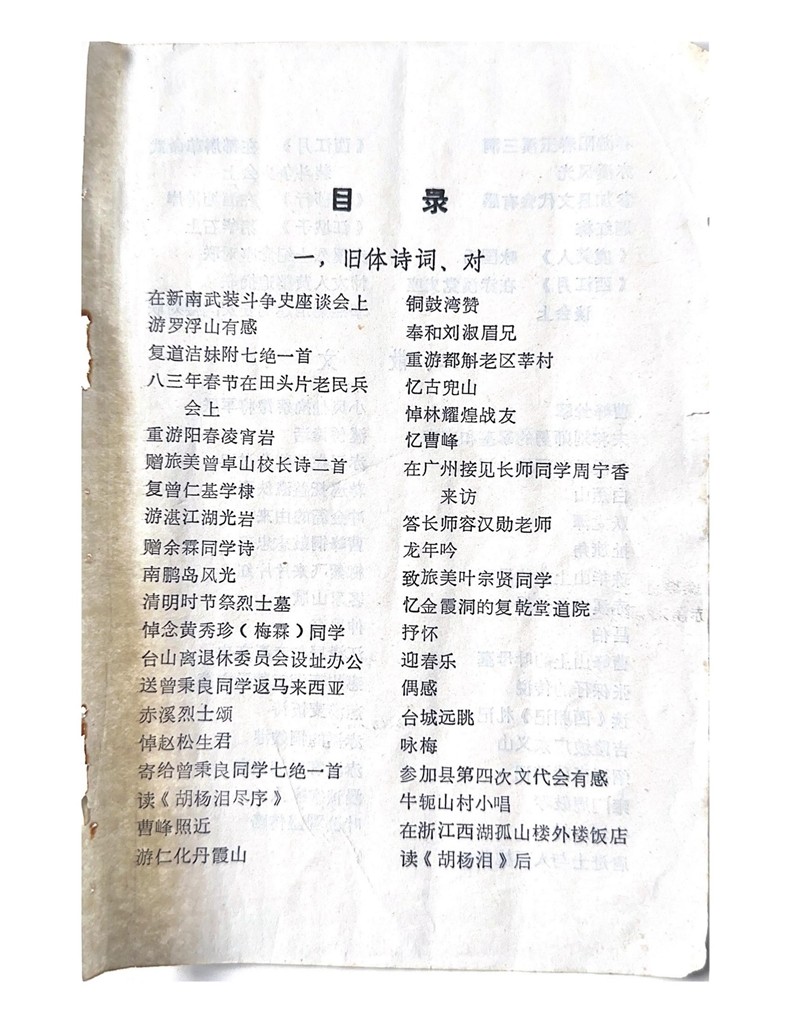 目 录
一，旧体诗词、对
在新南武装斗争史座谈会上
游罗浮山有感
复道洁妹附七绝一首
八三年春节在田头片老民兵
会上
重游阳春凌宵岩
赠旅美曾卓山校长诗二首
复曾仁基学棣
游湛江湖光岩
赠余霖同学诗
南鹏岛风光
清明时节祭烈士墓
悼念黄秀珍（梅霖）同学
台山离退休委员会设址办公
送曾秉良同学返马来西亚
赤溪烈士颂
悼赵松生君
寄给曾秉良同学七绝一首
读《胡杨泪尽序》
曹峰照近
游仁化丹霞山
铜鼓湾赞
奉和刘淑眉兄
重游都斛老区莘村
忆古兜山
悼林耀煌战友
忆曹峰
在广州接见长师同学周宁香
来访
答长师容汉勋老师
龙年吟
致旅美叶宗贤同学
忆金霞洞的复乾堂道院
抒怀
迎春乐
偶感
台城远眺
咏梅
参加县第四次文代会有感
牛轭山村小唱
在浙江西湖孤山楼外楼饭店
读《胡杨泪》后